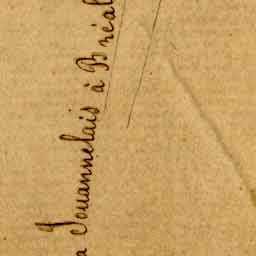 a Jouannelais à Bréal